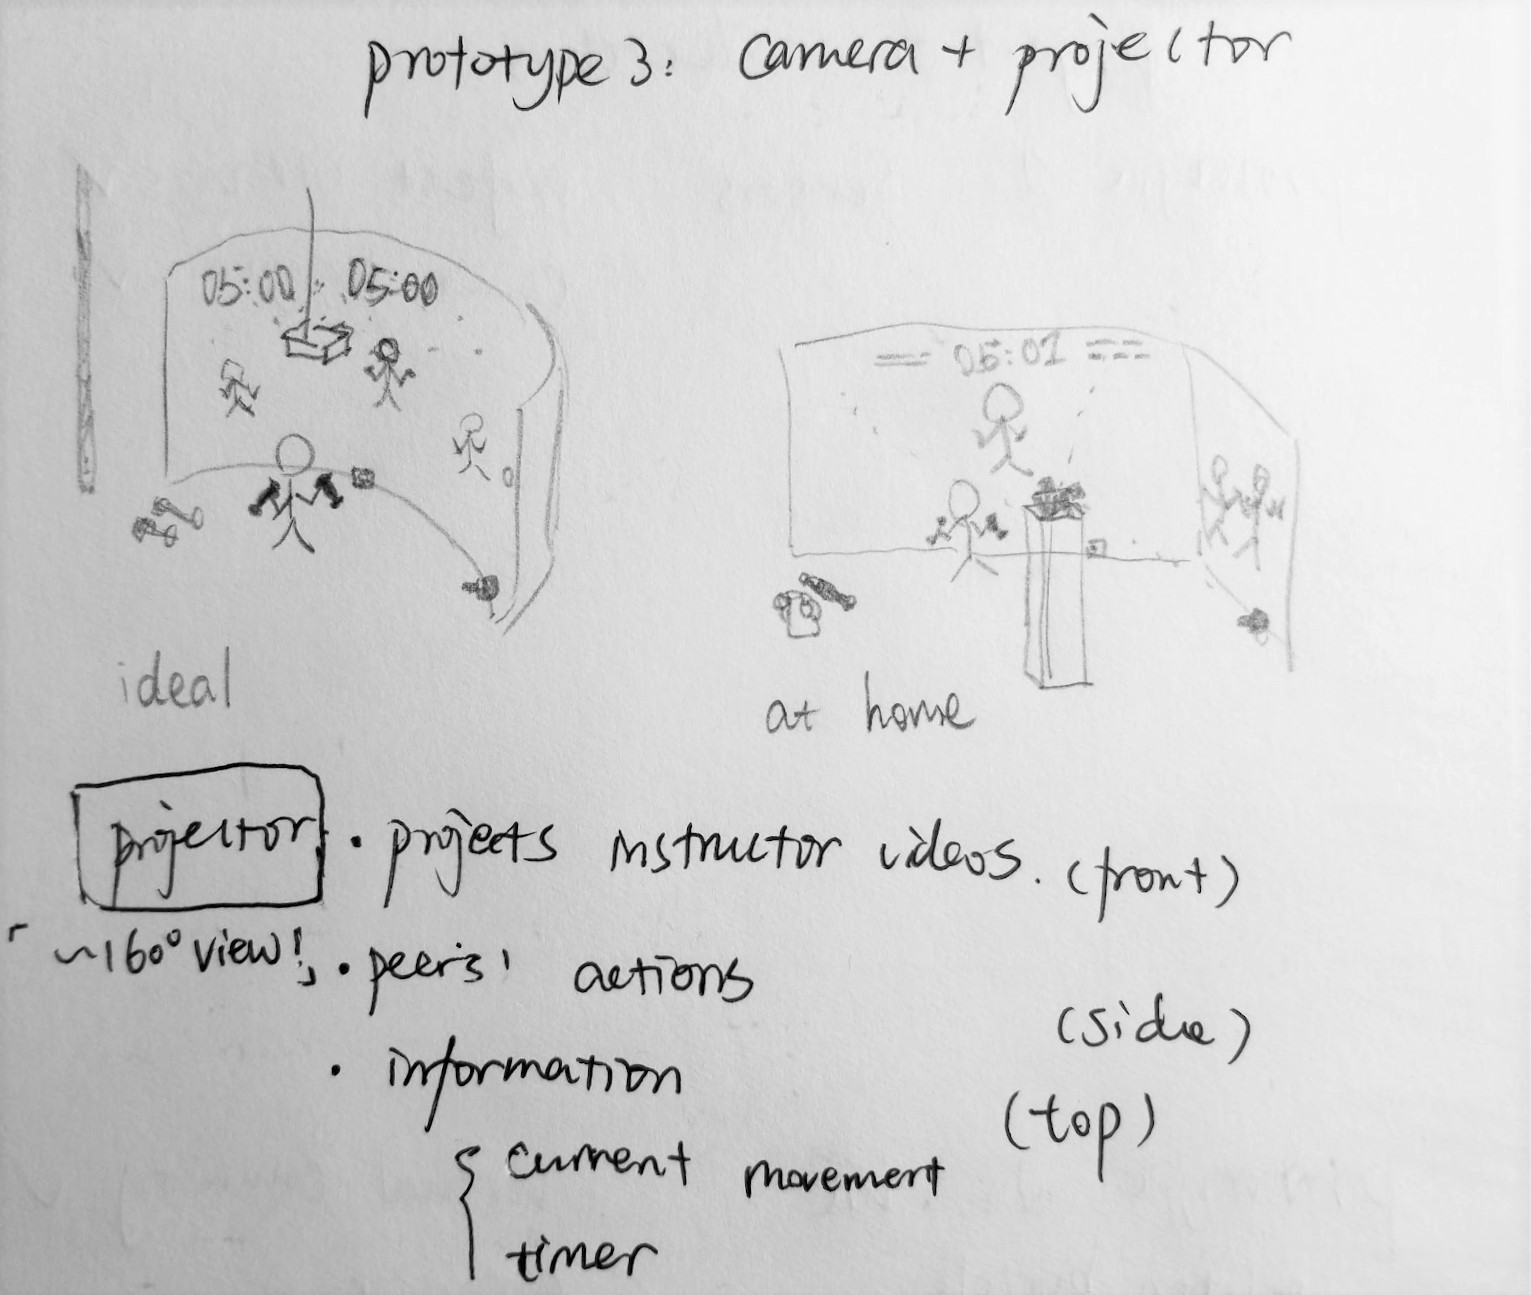 prototype 3: camera + projector
05:00 05:00
05:01
ideal
at home
projector • projects instructor videos. (front)
「~160° view!」 • peers' actions
(side)
• information
(top)
{ current movement
timer